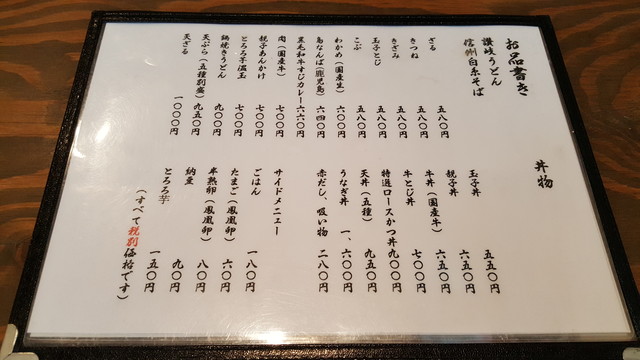 お品書き
讃岐うどん
信州白糸そば
ざる 五八〇円
きつね 五八〇円
きざみ 五八〇円
玉子とじ 五八〇円
こぶ 五八〇円
わかめ(国産生) 六〇〇円
鳥なんば(鹿児島) 六四〇円
黒毛和牛すじカレー 六六〇円
肉(国産牛) 七〇〇円
親子あんかけ 七〇〇円
とろろ芋温玉 七〇〇円
鍋焼きうどん 九〇〇円
天ぷら(五種別盛) 九五〇円
天ざる 一〇〇〇円
丼物
玉子丼 五五〇円
親子丼 六五〇円
牛丼(国産牛) 六五〇円
牛とじ丼 七〇〇円
特選ロースかつ丼 九〇〇円
天丼(五種) 九五〇円
うなぎ丼 一、六〇〇円
赤だし、吸い物 二八〇円
サイドメニュー
ごはん 一八〇円
たまご(鳳凰卵) 六〇円
半熟卵(鳳凰卵) 八〇円
納豆 九〇円
とろろ芋 一五〇円
(すべて税別価格です)